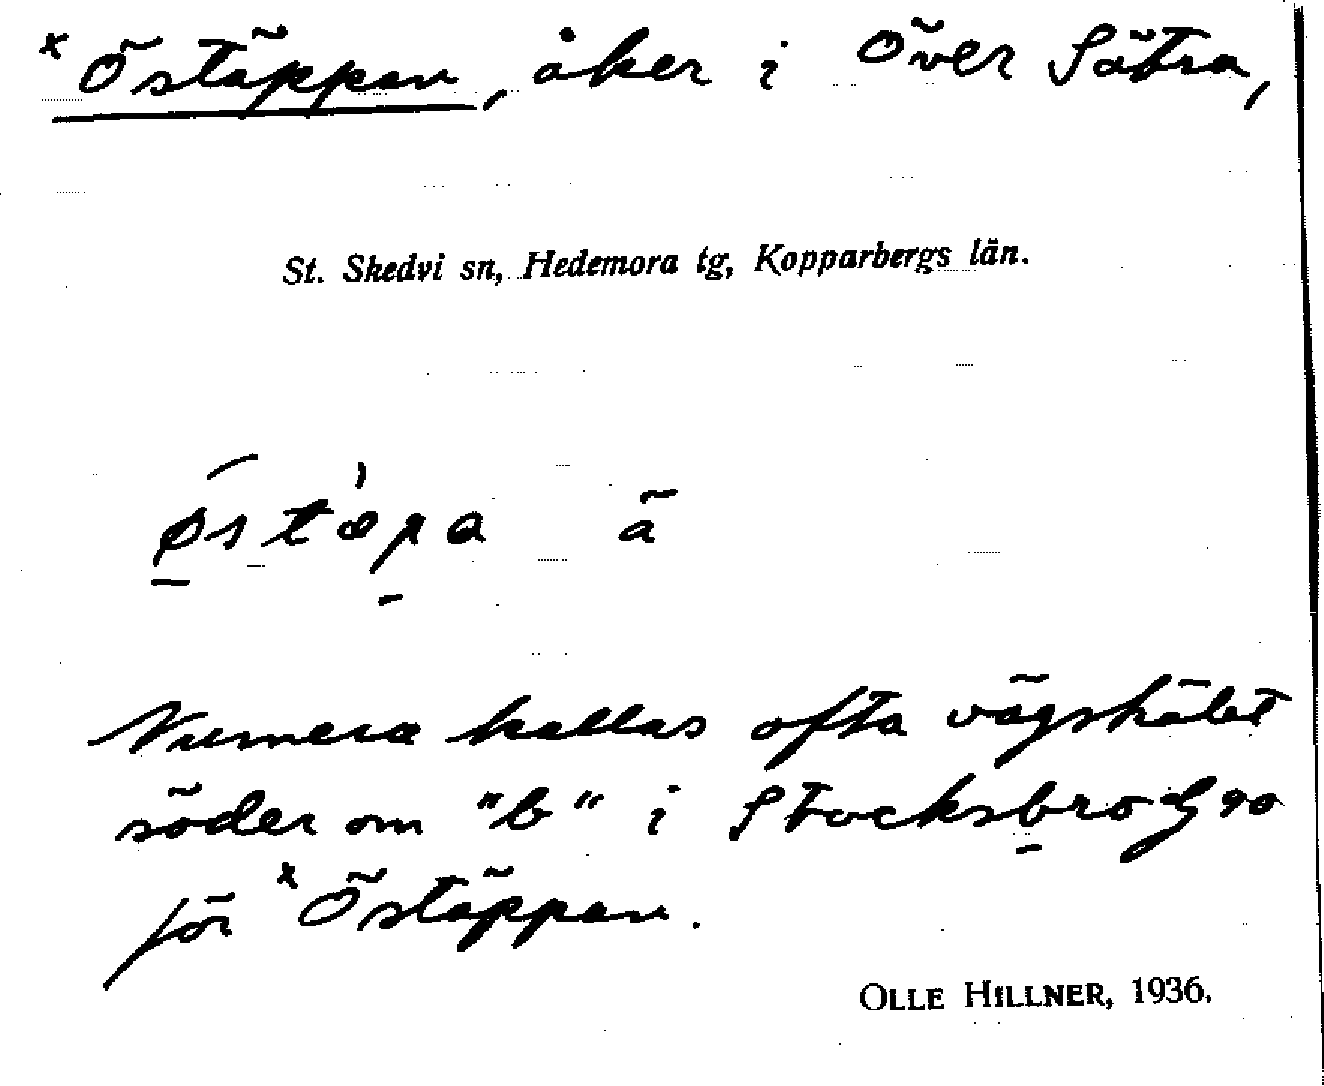 x Östäppan, åker i Över Sätra,
St. Skedvi sn, Hedemora tg, Kopparbergs län.
östäpa ä
Numera kallas ofta vägskälet
söder om "b" i Stocksbro G 90
för x Östäppan.
OLLE HILLNER, 1936.